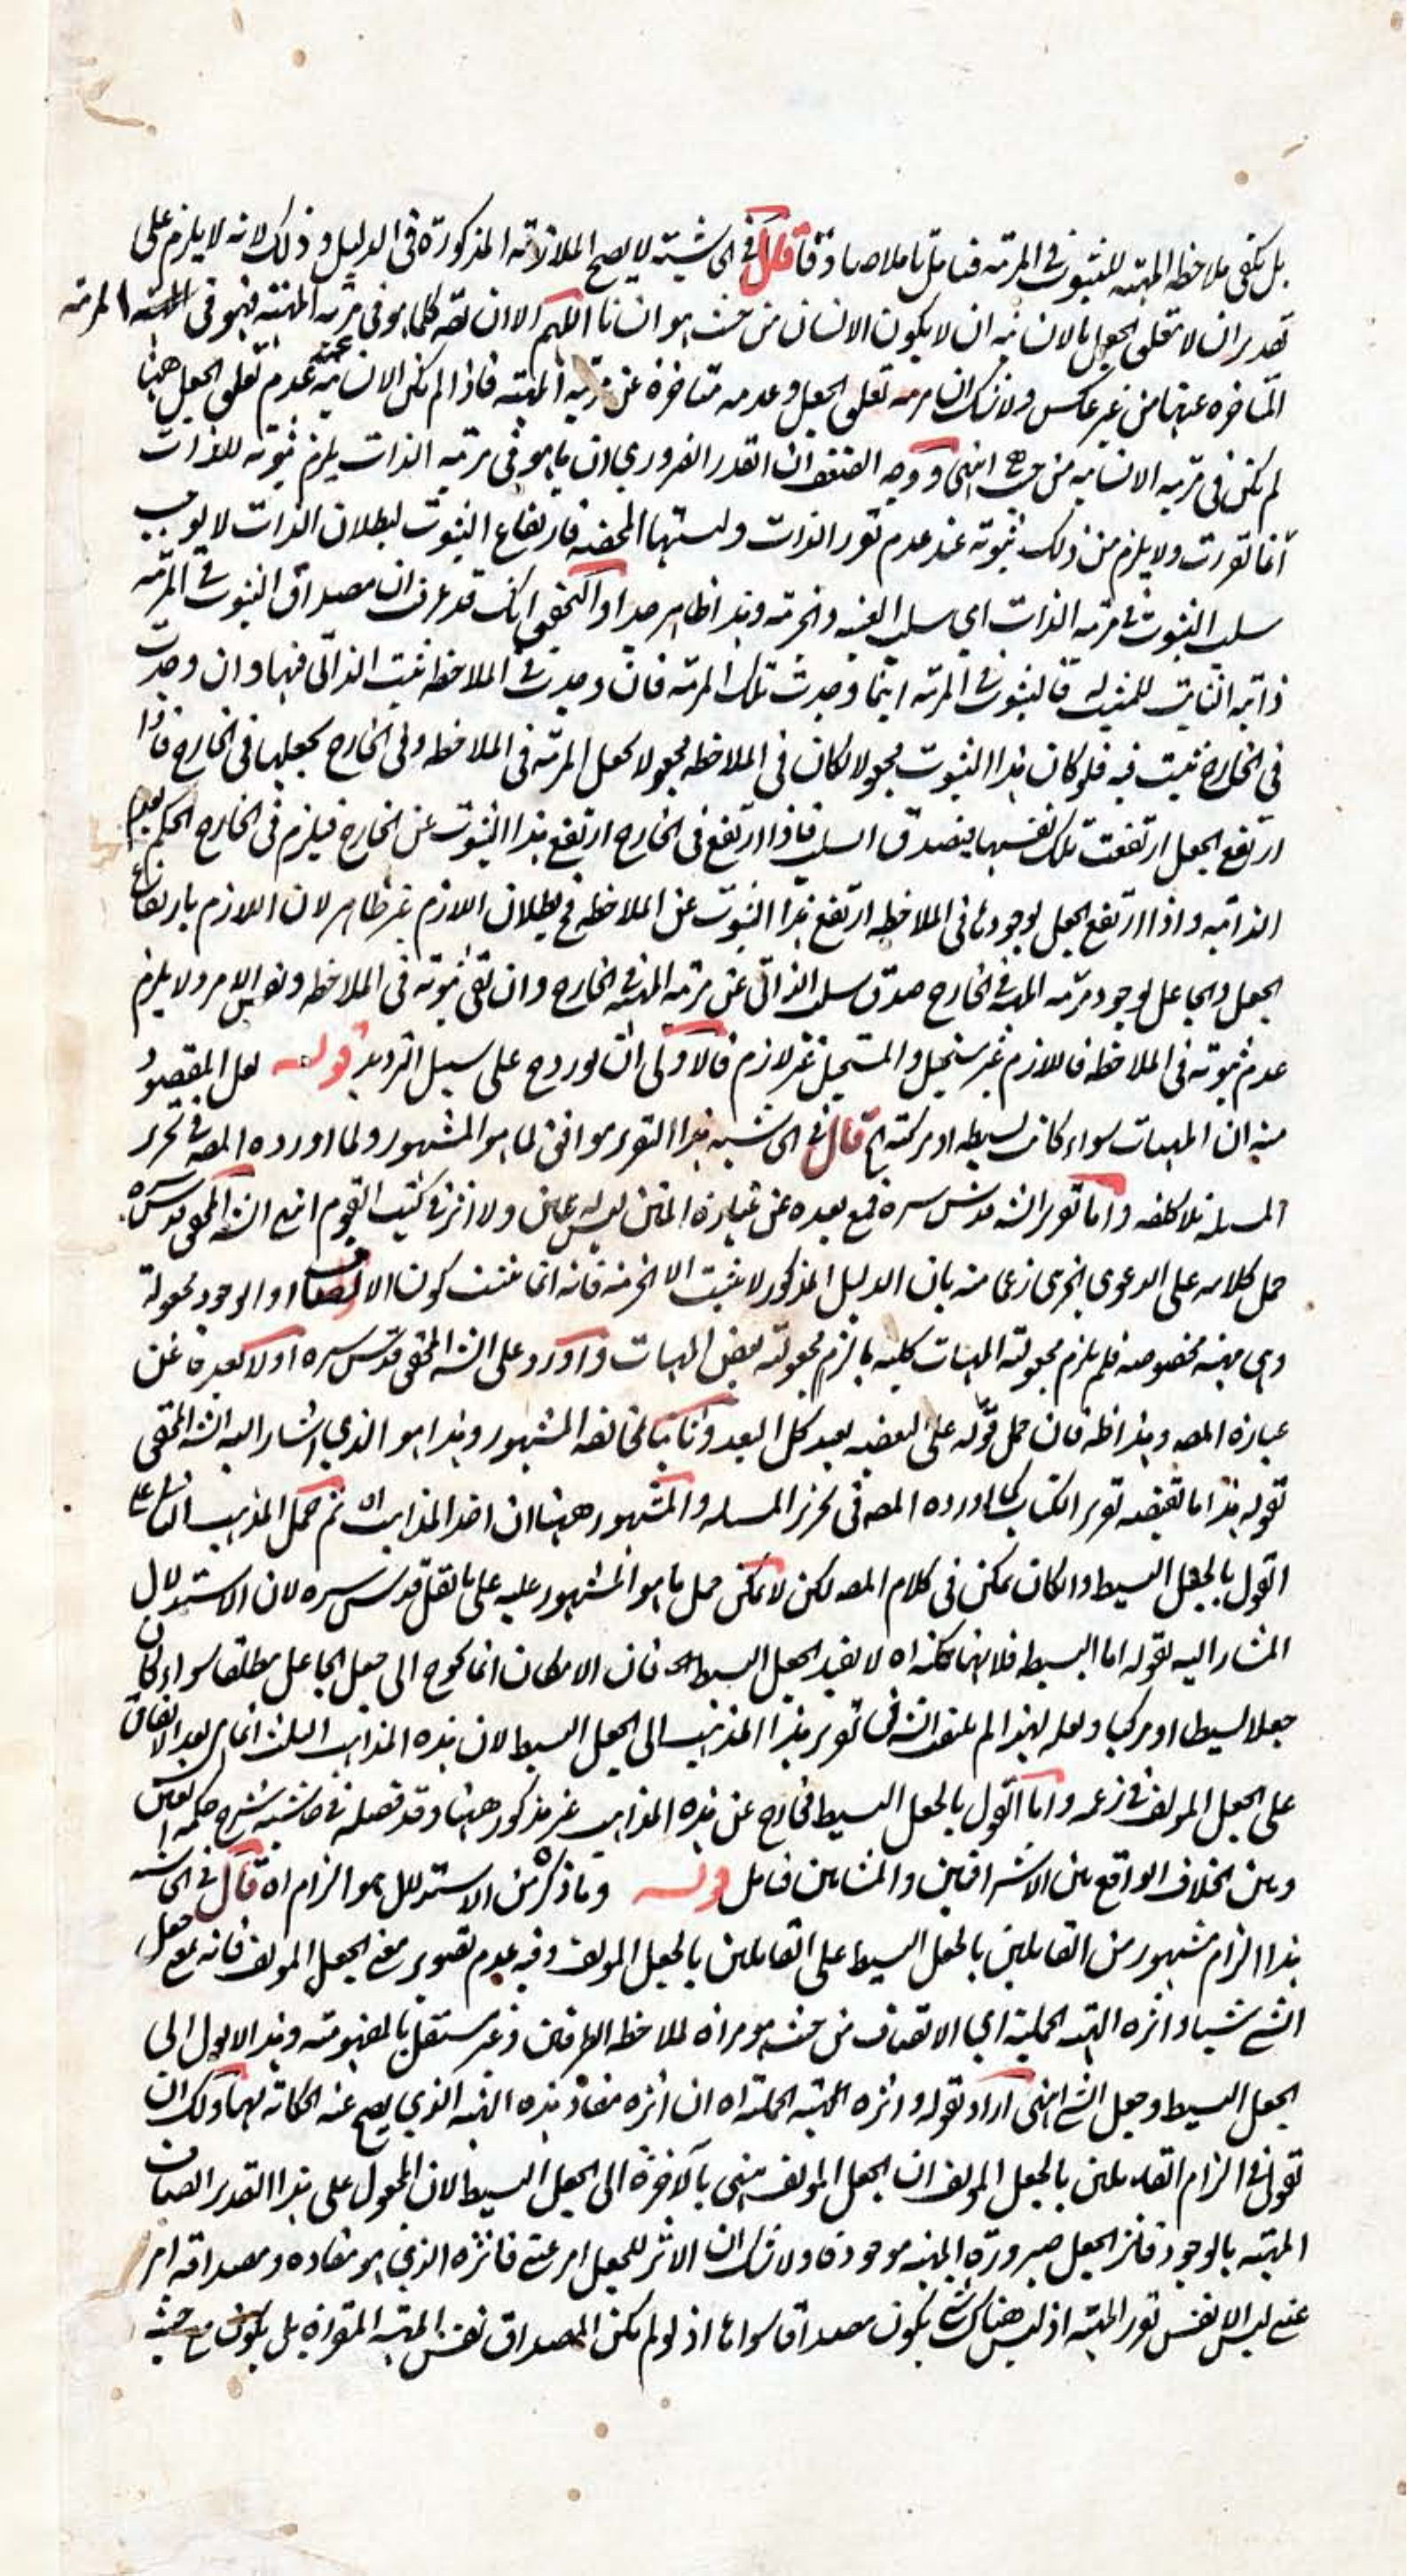 بل يكفى ملاحظة المهية للثبوت فى المرتبة فتامل تاملا صادقا قال فى الحاشية لا يصح الملازمة المذكورة فى الدليل وذلك لانه لا يلزم على
تقدير ان لا يتعلق الجعل بالانسانية ان لا يكون الانسان من حيث هو انسانا اللهم الا ان يقال كلما هو فى مرتبة المهية فهو فى المرتبة
المتاخرة عنها من غير عكس ولا شك ان مرتبة تعلق الجعل وعدمه متاخرة عن مرتبة المهية فاذا لم يكن الانسانية عند عدم تعلق الجعل ههنا
لم تكن فى مرتبة الانسانية من حيث هى انتهى ووجه الضعف ان القدر الضرورى ان ما هو فى مرتبة الذات يلزم ثبوته للذات
اذا تقررت ولا يلزم من ذلك ثبوته عند عدم تقرر الذات وليسيتها المحضة فارتفاع الثبوت لبطلان الذات لا يوجب
سلب الثبوت فى مرتبة الذات اى سلب العينية والجزئية وهذا ظاهر جدا ولا يخفى انك قد عرفت ان مصداق الثبوت فى المرتبة
ذاتية الثابت للمثبت له فالثبوت فى المرتبة اينما وجدت تلك المرتبة فان وجدت فى الملاحظة ثبت الذاتى فيها وان وجدت
فى الخارج ثبت فيه فلو كان هذا الثبوت مجعولا لكان فى الملاحظة مجعولا بجعل المرتبة فى الملاحظة وفى الخارج بجعلها فى الخارج فاذا
ارتفع الجعل ارتفعت تلك نفسها فيصدق السلب فاذا ارتفع فى الخارج ارتفع هذا الثبوت عن الخارج فيلزم فى الخارج الحكم بعدم
الذاتية واذا ارتفع الجعل لوجودها فى الملاحظة ارتفع هذا الثبوت عن الملاحظة فبطلان اللازم غير ظاهر لان اللازم بارتفاع
الجعل والجاعل لوجود مرتبة المهية فى الخارج صدق سلب الذاتى عن مرتبة المهية فى الخارج وان بقى ثبوته فى الملاحظة ونفس الامر ولا يلزم
عدم ثبوته فى الملاحظة فاللازم غير مستحيل والمستحيل غير لازم فالاولى ان يورد ح على سبيل الترديد قوله لعل المقصود
منه ان المهيات سواء كانت بسيطة او مركبة الخ قال فى الحاشية هذا التقرير موافق لما هو المشهور ولما اورده المص فى تحرير
المسئلة بلا كلفة واما تقرير الش قدس سره فمع بعده عن عبارة المتن ليس له عين ولا اثر فى كتب القوم انتهى الش المحقق قدس سره
حمل كلامه على الدعوى الجزئى زعما منه بان الدليل المذكور لا يثبت الا الجزئية فانه انما يثبت كون الاتصاف او الوجود مجعولة
وهى مهية مخصوصة فلم يلزم مجعولية المهيات كلية بل لزم مجعولية بعض المهيات واورد على الش المحقق قدس سره اولا ببعده عن
عبارة المص وهذا ظ فان حمل قوله على البعضية بعيد كل البعد وثانيا بمخالفة المشهور وهذا هو الذى اشار اليه الش المحقق
بقوله هذا ما يقتضيه تقرير الكتاب كما اورده المص فى تحرير المسئلة والمشهور ههنا ان احد المذاهب اه ثم حمل المذهب الثالث على
القول بالجعل البسيط وان كان يمكن فى كلام المص لكن لا يمكن حمل ما هو المشهور عليه على ما نقل قدس سره لان الاستدلال
المشار اليه بقوله اما البسيطة فلانها ممكنة اه لا يفيد الجعل البسيط فان الامكان انما يحوج الى جعل الجاعل مطلقا سواء كان
جعلا بسيطا او مركبا ولعله لهذا لم يلتفت الش فى تقرير هذا المذهب الى الجعل البسيط لان هذه المذاهب الثلث انما هى بعد الاتفاق
على الجعل المؤلف فى زعمه واما القول بالجعل البسيط فخارج عن هذه المذاهب غير مذكور ههنا وقد فصله فى حاشية شرح حكمة العين
وبين الخلاف الواقع بين الاشراقيين والمشائين فتامل قوله وما ذكره من الاستدلال هو الزام اه قال فى الحاشية
هذا الزام مشهور من القائلين بالجعل البسيط على القائلين بالجعل المؤلف وفيه عدم تصوير معنى الجعل المؤلف فانه بمعنى جعل
الشئ شيئا واثره الهيئة الحملية اى الاتصاف من حيث هو مراة لملاحظة الطرفين وغير مستقل بالمفهومية وهذا لا يؤل الى
الجعل البسيط وجعل الشئ انتهى اراد بقوله واثره الهيئة الحملية اه ان اثره مفاد هذه الهيئة الذى يصح عنه الحكاية بها ولك ان
تقول فى الزام القائلين بالجعل المؤلف ان الجعل المؤلف ينتهى بالاخرة الى الجعل البسيط لان المجعول على هذا التقدير اتصاف
المهية بالوجود فاثر الجعل صيرورة المهية موجودة ولا شك ان الاثر للجعل امر عينى فاثره الذى هو مفاده ومصداقه امر
عينى ليس الا نفس تقرر المهية اذ ليس هناك شئ يكون مصداقا سواها اذ لو لم يكن المصداق نفس المهية المتقررة بل يكون مع حيثية